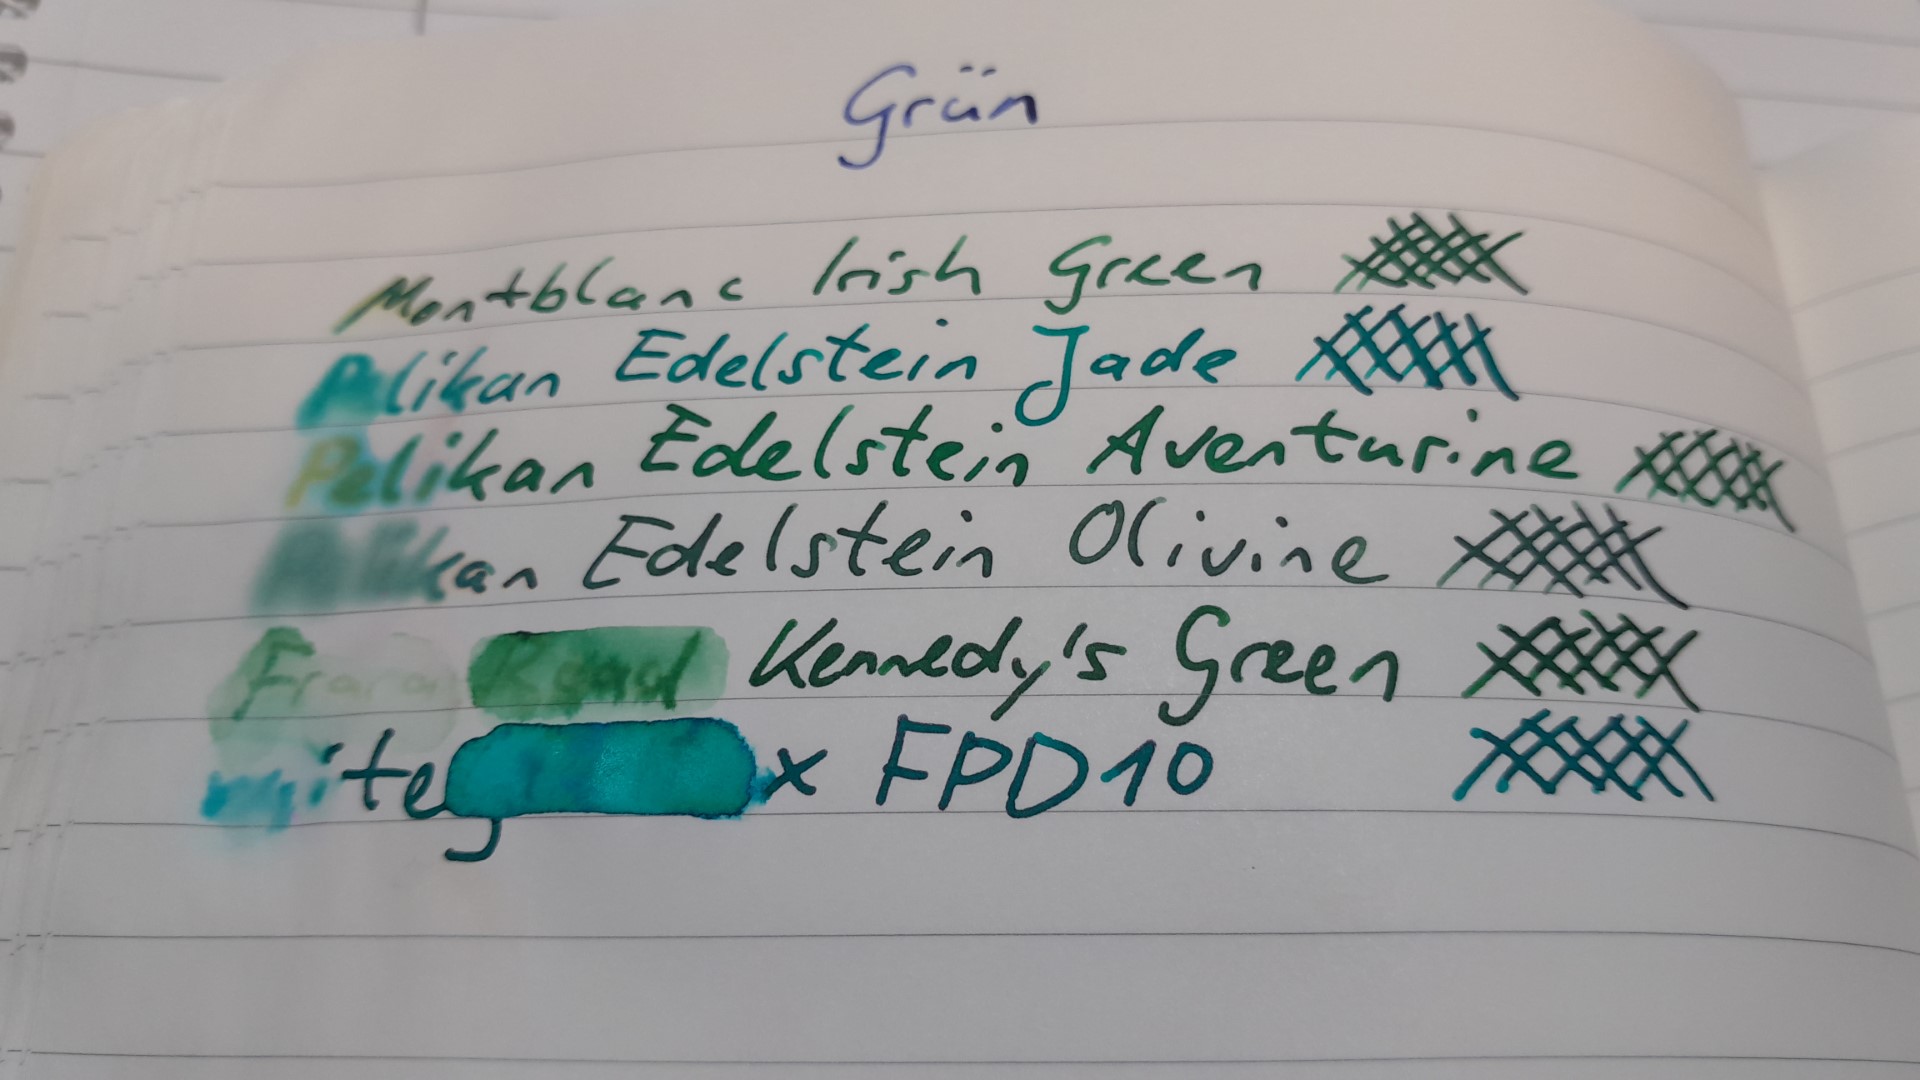 Grün
Montblanc Irish Green
Pelikan Edelstein Jade
Pelikan Edelstein Aventurine
Pelikan Edelstein Olivine
Kennedy's Green
x FPD10